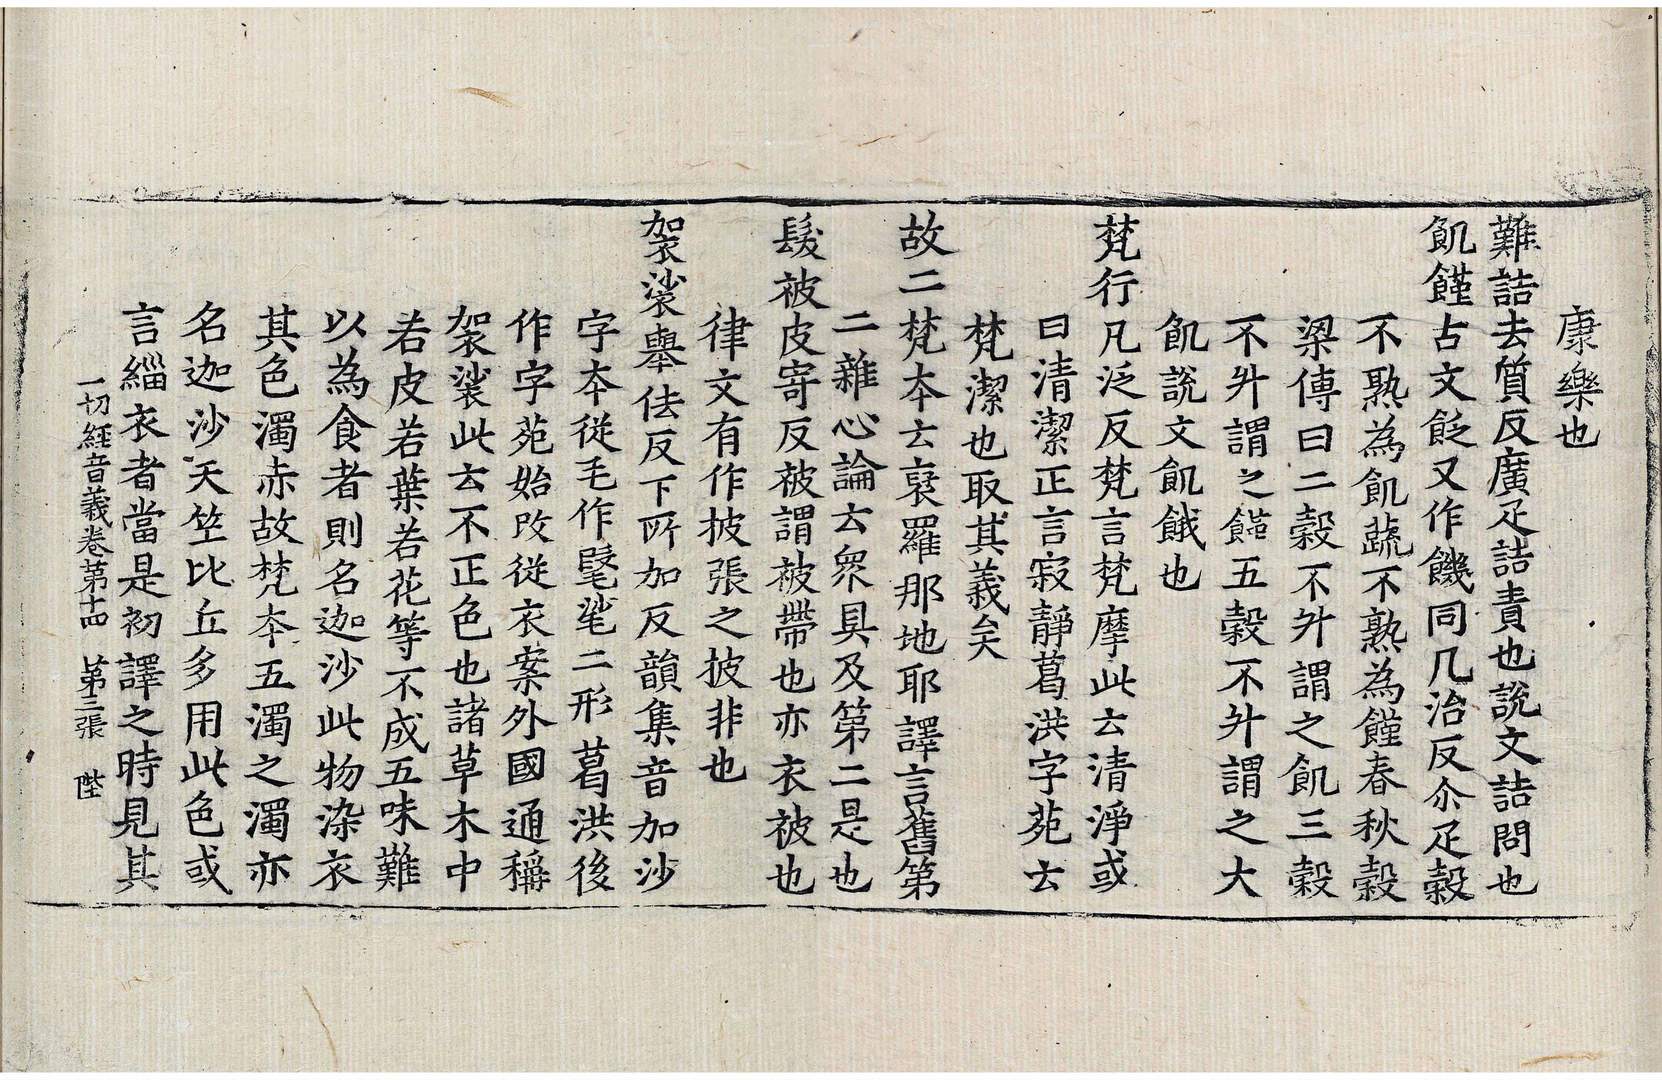 康樂也
難詰去質反廣疋詰責也說文詰問也
飢饉古文飢又作饑同几治反尒疋穀
不熟為飢蔬不熟為饉春秋穀
梁傳曰二穀不升謂之飢三穀
不升謂之饉五穀不升謂之大
飢說文飢餓也
梵行凡泛反梵言梵摩此云清淨或
曰清潔正言寂靜葛洪字苑云
梵潔也取其義矣
故二梵夲云裒羅那地耶譯言舊第
二雜心論云衆具及第二是也
髲被皮寄反被謂被帶也亦衣被也
律文有作披張之披非也
袈裟舉佉反下所加反韻集音加沙
字夲從毛作㲚𣮫二形葛洪後
作字苑始改從衣案外國通稱
袈裟此云不正色也諸草木中
若皮若葉若花等不成五味難
以為食者則名迦沙此物染衣
其色濁赤故梵夲五濁之濁亦
名迦沙天竺比丘多用此色或
言緇衣者當是初譯之時見其
一切經音義卷第十四 第三張 陞